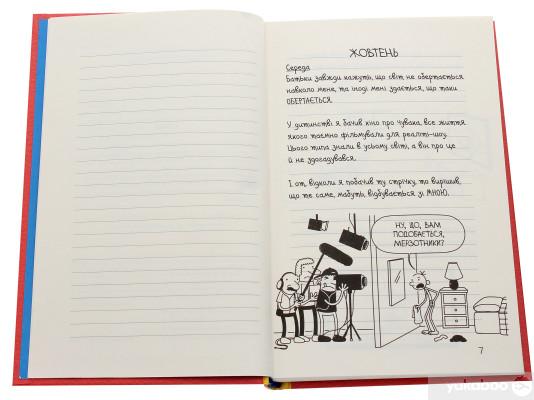 ЖОВТЕНЬ
Середа
Батьки завжди кажуть, що світ не обертається
навколо мене, та іноді мені здається, що таки
ОБЕРТАЄТЬСЯ.
У дитинстві я бачив кіно про чувака, все життя
якого таємно фільмували для реаліті-шоу.
Цього типа знали в усьому світі, а він про це
й не здогадувався.
І от, відколи я побачив ту стрічку, то вирішив,
що те саме, мабуть, відбувається зі МНОЮ.
НУ, ЩО, ВАМ
ПОДОБАЄТЬСЯ,
МЕРЗОТНИКИ?
7
yakaboo